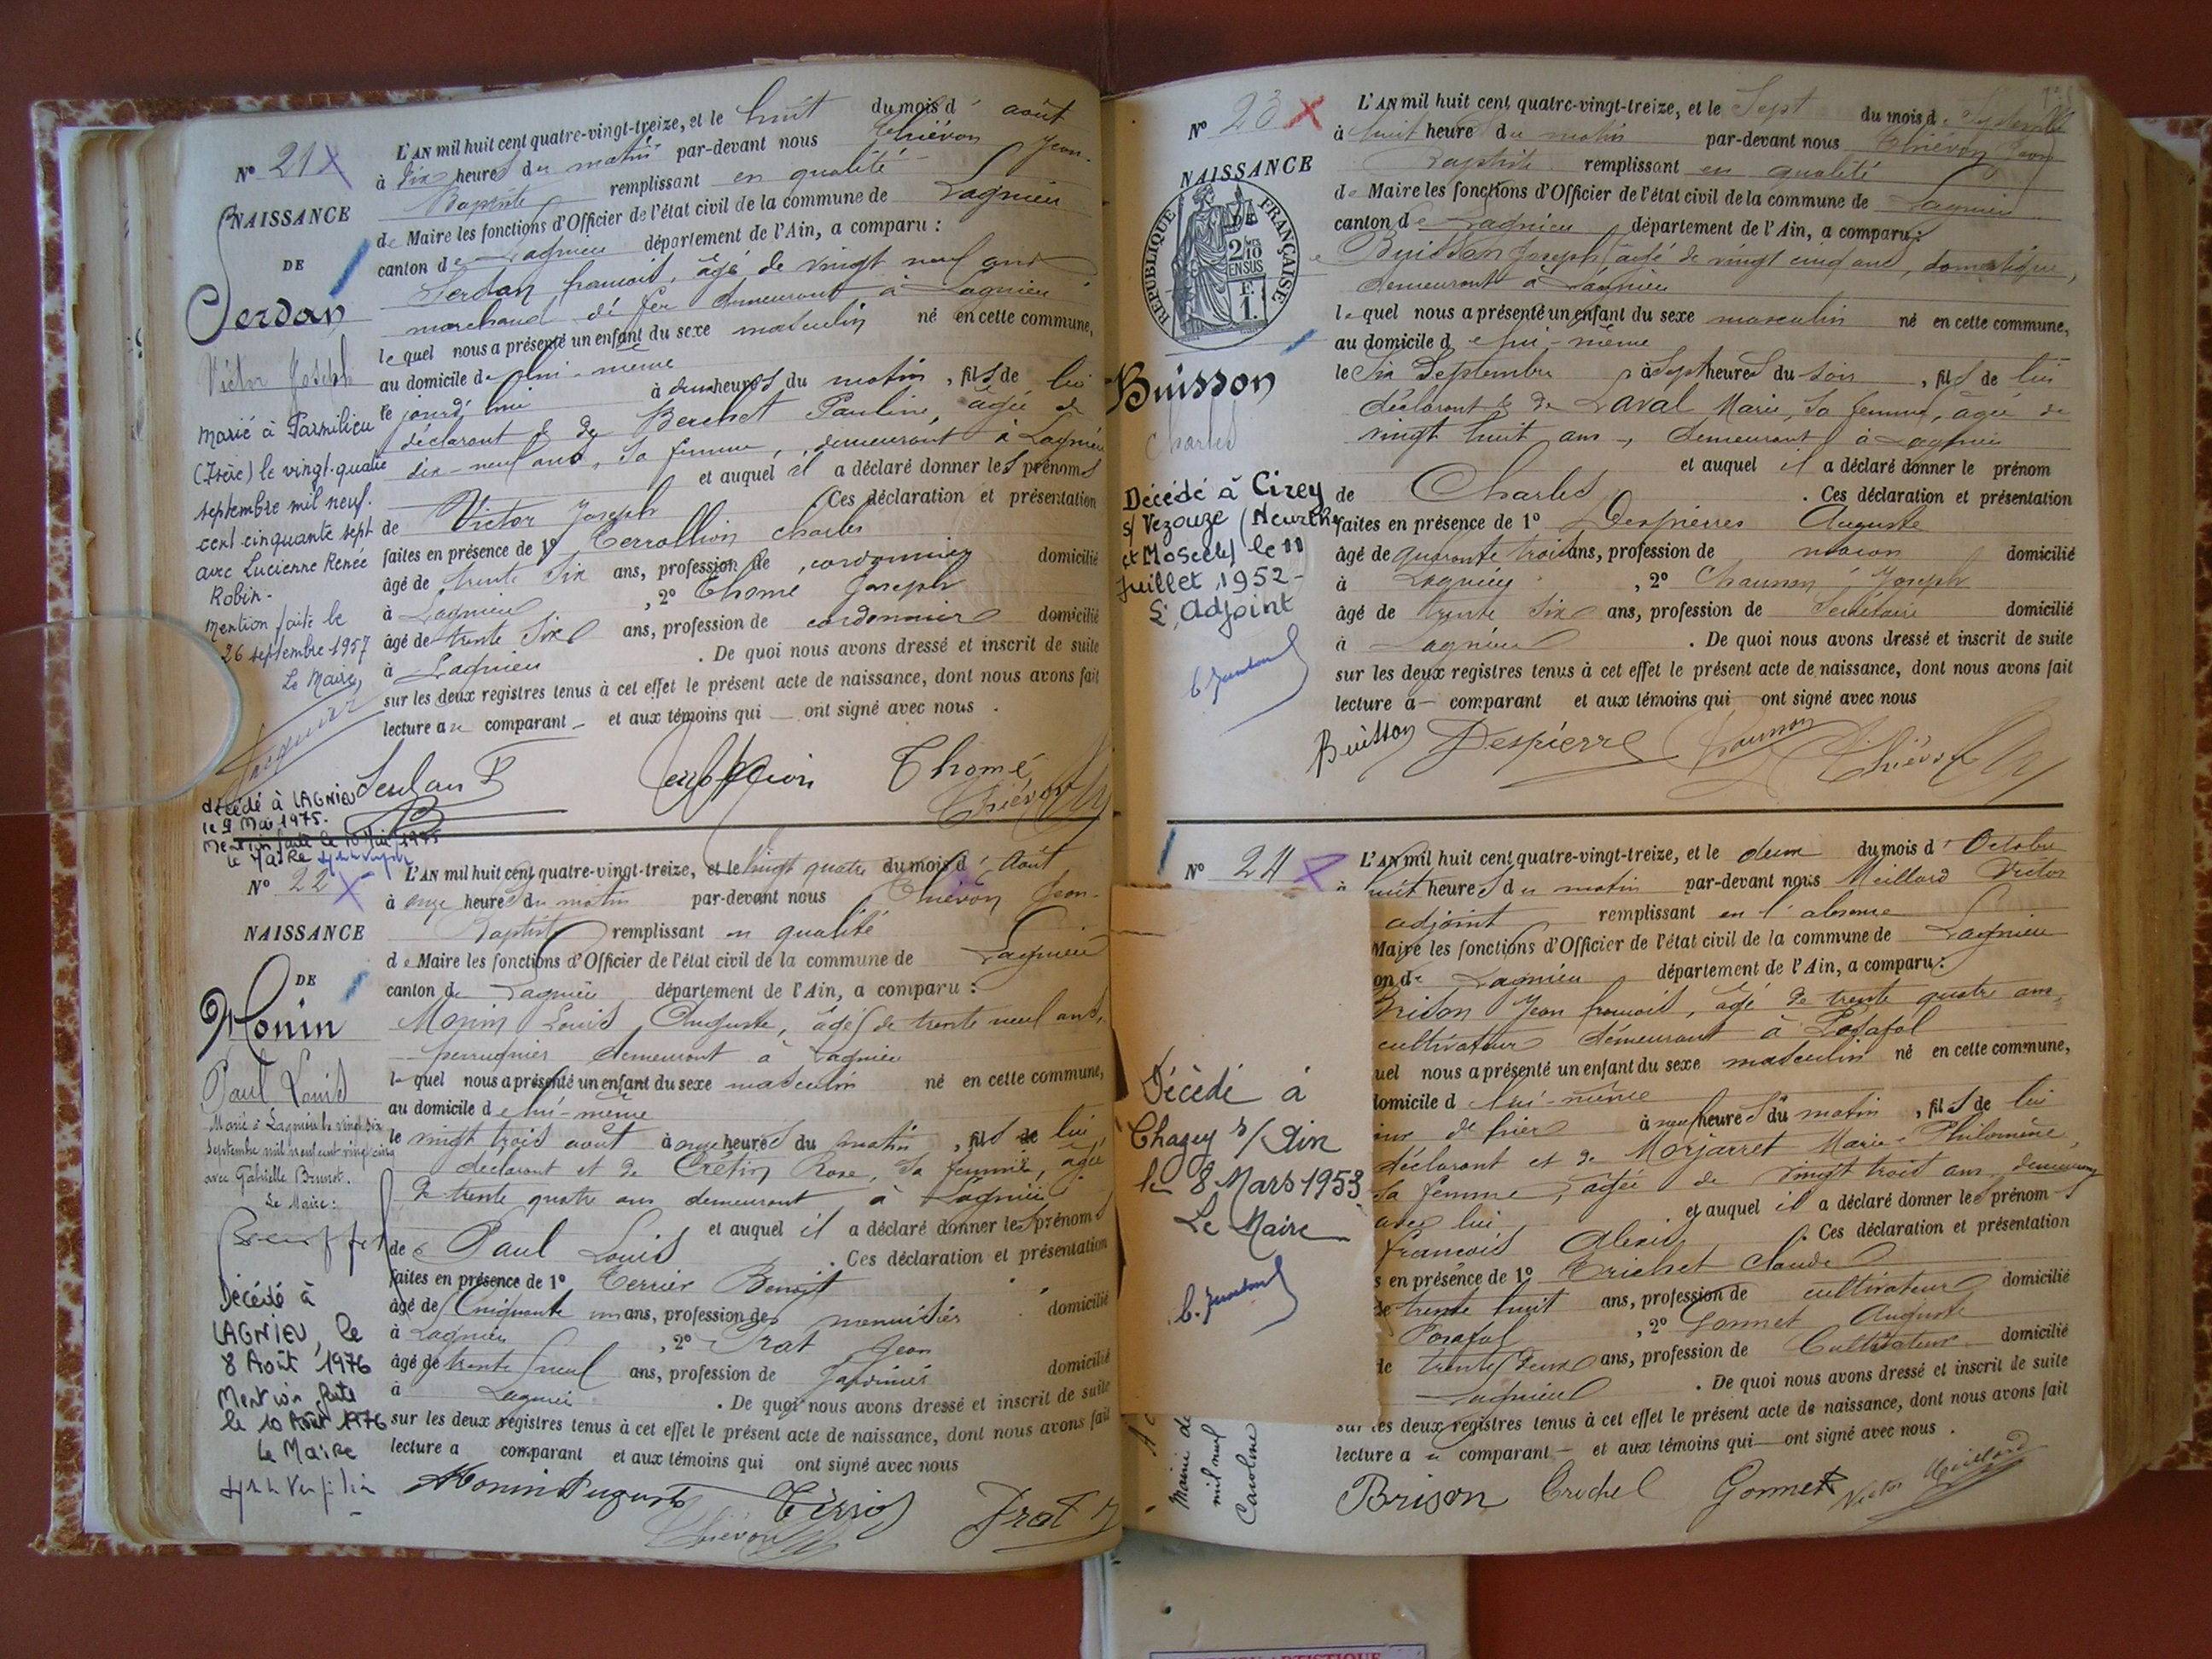 Nº 21
NAISSANCE
DE
Serdan
Victor Joseph
Marié à Parmilieu
(Isère) le vingt-quatre
septembre mil neuf
cent cinquante sept
avec Lucienne Renée
Robin.
Mention faite le
26 septembre 1957
Le Maire,
décédé à LAGNIEU
le 9 Mai 1975.
Mention faite le 10 Mai 1975
Le MAIRE
L'AN mil huit cent quatre-vingt-treize, et le huit du mois d' août
à dix heures du matin par-devant nous Thiévon Jean-
Baptiste remplissant en qualité
de Maire les fonctions d'Officier de l'état civil de la commune de Lagnieu
canton de Lagnieu département de l'Ain, a comparu :
Serdan françois, âgé de vingt neuf ans
marchand de fer demeurant à Lagnieu
lequel nous a présenté un enfant du sexe masculin né en cette commune,
au domicile de lui-même
le jourd'hui à deux heures du matin, fils de lui
déclarant & de Berchet Pauline, âgée de
dix-neuf ans, sa femme, demeurant à Lagnieu
et auquel il a déclaré donner les prénoms
de Victor Joseph . Ces déclaration et présentation
faites en présence de 1º Terrollion Charles
âgé de trente six ans, profession de cordonnier domicilié
à Lagnieu , 2º Thomé Joseph
âgé de trente six ans, profession de cordonnier domicilié
à Lagnieu . De quoi nous avons dressé et inscrit de suite
sur les deux registres tenus à cet effet le présent acte de naissance, dont nous avons fait
lecture au comparant et aux témoins qui ont signé avec nous .
Serdan F Thomé
Thiévon
Nº 22
NAISSANCE
DE
Monin
Paul Louis
Marié à Lagnieu le vingt six
septembre mil neuf cent vingt cinq
avec Gabrielle Brunet.
Le Maire :
Décédé à
LAGNIEU, le
8 Août 1976
Mention faite
le 10 Août 1976
Le Maire
L'AN mil huit cent quatre-vingt-treize, et le vingt quatre du mois d' Août
à onze heures du matin par-devant nous Thiévon Jean-
Baptiste remplissant en qualité
de Maire les fonctions d'Officier de l'état civil de la commune de Lagnieu
canton de Lagnieu département de l'Ain, a comparu :
Monin Louis Auguste, âgé de trente neuf ans,
perruquier demeurant à Lagnieu
lequel nous a présenté un enfant du sexe masculin né en cette commune,
au domicile de lui-même
le vingt trois août à onze heures du matin, fils de lui,
déclarant et de Crétin Rose, sa femme, âgée
de trente quatre ans demeurant à Lagnieu
et auquel il a déclaré donner les prénoms
de Paul Louis . Ces déclaration et présentation
faites en présence de 1º Terrier Benoît
âgé de cinquante un ans, profession de menuisier domicilié
à Lagnieu , 2º Prat Jean
âgé de trente neuf ans, profession de jardinier domicilié
à Lagnieu . De quoi nous avons dressé et inscrit de suite
sur les deux registres tenus à cet effet le présent acte de naissance, dont nous avons fait
lecture a comparant et aux témoins qui ont signé avec nous
Monin Auguste Prat
Thiévon
Nº 23
NAISSANCE
DE
RÉPUBLIQUE FRANÇAISE
2/10 EN SUS
F. 1.
Buisson
Charles
Décédé à Cirey
s/ Vezouze (Meurthe
et Moselle) le 11
Juillet 1952 -
L'Adjoint
L'AN mil huit cent quatre-vingt-treize, et le Sept du mois de Septembre
à huit heures du matin par-devant nous Thiévon Jean
Baptiste remplissant en qualité
de Maire les fonctions d'Officier de l'état civil de la commune de Lagnieu
canton de Lagnieu département de l'Ain, a comparu :
Buisson Joseph âgé de vingt cinq ans, domestique,
demeurant à Lagnieu
lequel nous a présenté un enfant du sexe masculin né en cette commune,
au domicile de lui-même
le Six Septembre à sept heures du soir, fils de lui
déclarant & de Laval Marie, sa femme, âgée de
vingt huit ans, demeurant à Lagnieu
et auquel il a déclaré donner le prénom
de Charles . Ces déclaration et présentation
faites en présence de 1º Despierres Auguste
âgé de quarante trois ans, profession de maçon domicilié
à Lagnieu , 2º Joseph
âgé de trente six ans, profession de Secrétaire domicilié
à Lagnieu . De quoi nous avons dressé et inscrit de suite
sur les deux registres tenus à cet effet le présent acte de naissance, dont nous avons fait
lecture à comparant et aux témoins qui ont signé avec nous
Buisson Despierre Thiévon
Nº 24
Décédé à
Chazey s/ Ain
le 8 Mars 1953
Le Maire
mil neuf
Caroline
L'AN mil huit cent quatre-vingt-treize, et le deux du mois d' Octobre
à huit heures du matin par-devant nous Meillard Victor
adjoint remplissant en l'absence
Maire les fonctions d'Officier de l'état civil de la commune de Lagnieu
on de Lagnieu département de l'Ain, a comparu :
Brison Jean françois, âgé de trente quatre ans,
cultivateur demeurant à Posafol
uel nous a présenté un enfant du sexe masculin né en cette commune,
domicile de lui-même
jour de hier à neuf heures du matin, fils de lui
déclarant et de Morjarret Marie-Philomène,
sa femme, âgée de vingt trois ans, demeurant
avec lui et auquel il a déclaré donner les prénoms
françois Alexis . Ces déclaration et présentation
s en présence de 1º Trichet Claude
de trente huit ans, profession de cultivateur domicilié
Posafol , 2º Gonnet Auguste
de trente deux ans, profession de Cultivateur domicilié
Lagnieu . De quoi nous avons dressé et inscrit de suite
sur les deux registres tenus à cet effet le présent acte de naissance, dont nous avons fait
lecture au comparant et aux témoins qui ont signé avec nous .
Brison Gonnet Victor Meillard